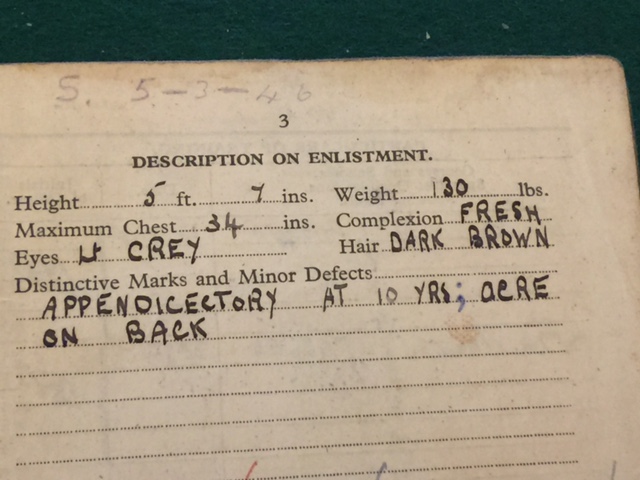 S. 5-3-46
3
DESCRIPTION ON ENLISTMENT.
Height 5 ft. 7 ins. Weight 130 lbs.
Maximum Chest 34 ins. Complexion FRESH
Eyes Lt GREY Hair DARK BROWN
Distinctive Marks and Minor Defects
APPENDICECTORY AT 10 YRS; ACRE
ON BACK